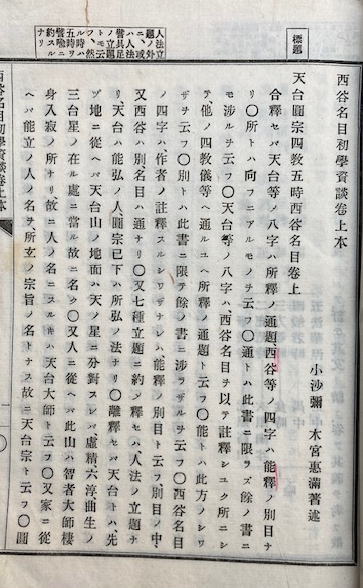 人法立
題ノ外
ニ、或
ハ人法
譬具足
ノ立題
トモ云
フ、然
ル時ハ
五時ヲ
譬喩ニ
約スル
ナリ
標題
西谷名目初學資談卷上本
小沙彌　木宮惠滿著述
天台圓宗四教五時西谷名目卷上
合釋セバ天台等ノ八字ハ所釋ノ通題、西谷等ノ四字ハ能釋ノ別目ナ
リ〇所トハ向フニアルモノヲ云フ〇通トハ此書ニ限ラズ餘ノ書ニ
モ渉ルヲ云フ〇天台等ノ八字ハ、西谷名目ヲ以テ註釋シユク所ニシ
テ、他ノ四教儀等ヘ通ルユヘ所釋ノ通題ト云フ〇能トハ此方ノシワ
ザヲ云フ〇別トハ此書ニ限テ餘ノ書ニ渉ラザルヲ云フ〇西谷名目
ノ四字ハ、作者ノ註釋スルシワザナレバ能釋ノ別目ト云フ別目ノ中、
又西谷ハ別名目ハ通ナリ〇又七種立題ニ約シ釋セバ、人法ノ立題ナ
リ天台ハ能弘ノ人圓宗已下ハ所弘ノ法ナリ〇離釋セバ天台トハ、先
ヅ地ニ從ヘバ天台山ノ地面ハ天ノ星ニ分野スレバ虛精六淳曲生ノ
三台星ノ在ル處ニ當ル故ニ名ク〇又人ニ從ヘバ此山ハ智者大師棲
身入寂ノ所ナリ故ニ人ノ名ニスルキハ天台大師ト云フ〇又家ニ從
ヘバ能立ノ人ノ名ヲ所立ノ宗旨ノ名トナス故ニ天台宗ト云フ〇圓
西谷名目初學資談卷上本